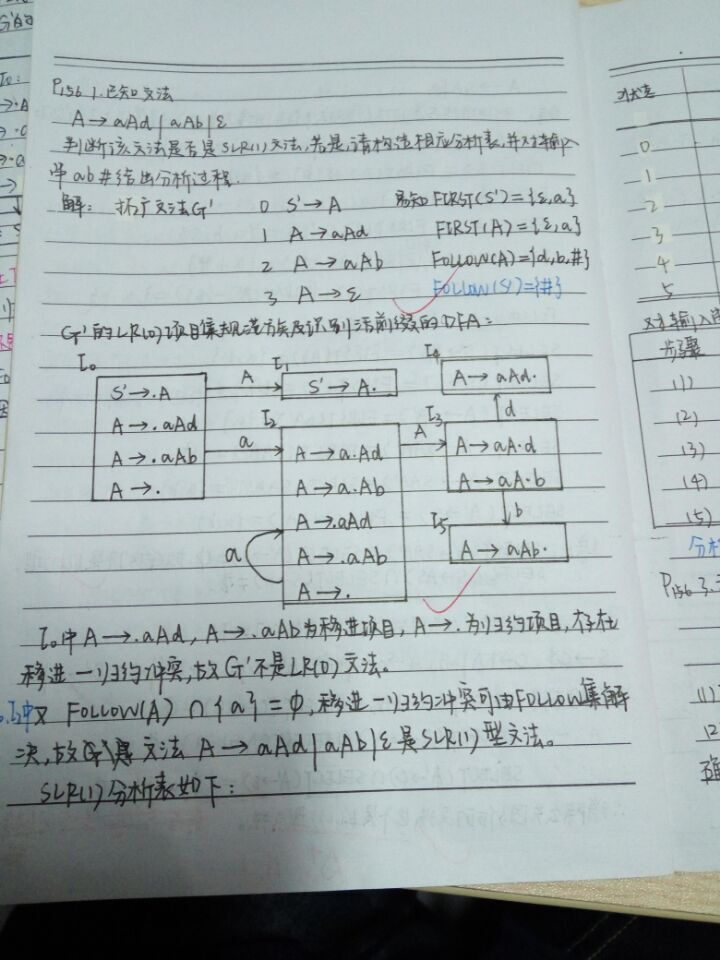 P156 1.已知文法
A→aAd|aAb|ε
判断该文法是否是SLR(1)文法,若是,请构造相应分析表,并对输入
串ab#给出分析过程.
解: 拓广文法G' 0 S'→A 易知FIRST(S')={ε,a}
1 A→aAd FIRST(A)={ε,a}
2 A→aAb FOLLOW(A)={d,b,#}
3 A→ε FOLLOW(S')={#}
G'的LR(0)项目集规范族及识别活前缀的DFA:
I₀
S'→.A
A→.aAd
A→.aAb
A→.
A
a
I₁
S'→A.
I₂
A→a.Ad
A→a.Ab
A→.aAd
A→.aAb
A→.
a
A
I₃
A→aA.d
A→aA.b
d
b
I₄
A→aAd.
I₅
A→aAb.
I₀中A→.aAd, A→.aAb为移进项目, A→.为归约项目,存在
移进-归约冲突,故G'不是LR(0)文法。
又 FOLLOW(A)∩{a}=Φ,移进-归约冲突可由FOLLOW集解
决,故 文法 A→aAd|aAb|ε是SLR(1)型文法。
SLR(1)分析表如下:
状态
0
1
2
3
4
5
对输入
步骤
(1)
(2)
(3)
(4)
(5)
P156 3.